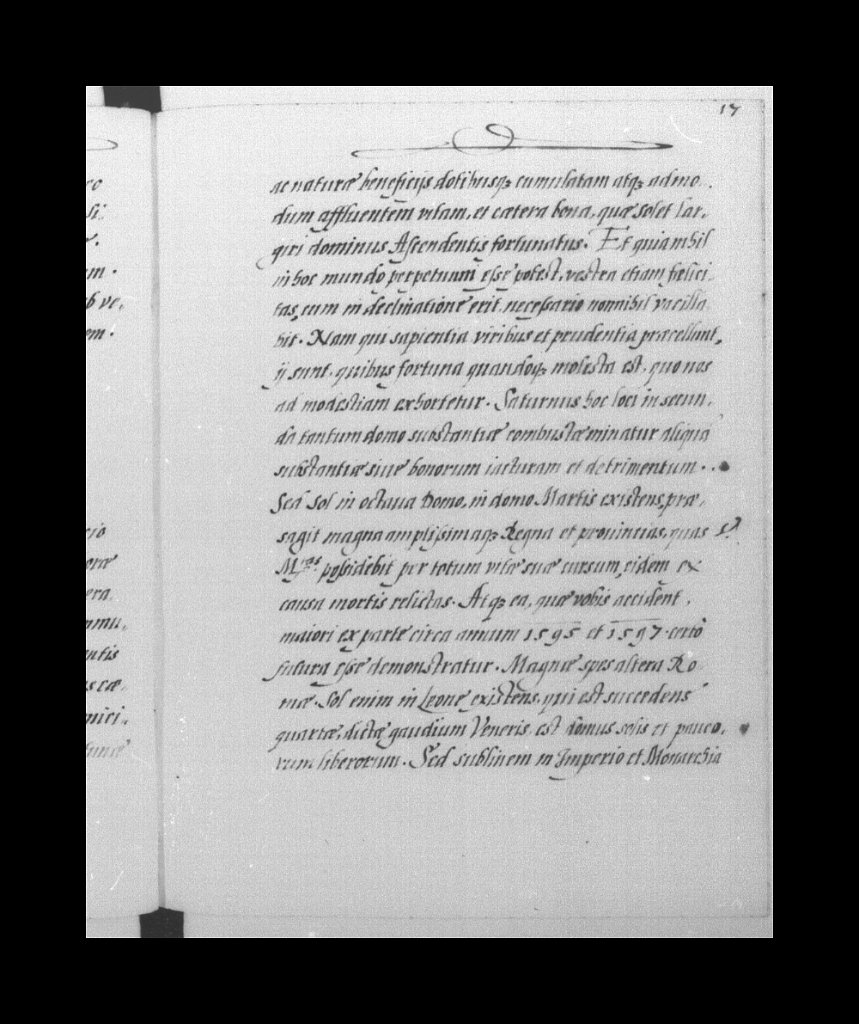 17
ac naturæ beneficijs dotibusq; cumulatam atq; admo.
dum affluentem vitam, et cætera bona, quæ solet lar,
giri dominus Ascendentis fortunatus. Et quia nihil
in hoc mundo perpetuum esse potest, vestra etiam fælici,
tas, cum in declinatione erit, necessario nonnihil vacilla
bit. Nam qui sapientia viribus et prudentia præcellant,
ij sunt, quibus fortuna quandoq; molesta est, quo nos
ad modestiam exhortetur. Saturnus hoc loci in secun,
da tantum domo substantiæ combustæ minatur aliquā
substantiæ siue bonorum iacturam et detrimentum.
Sed Sol in octaua Domo, in domo Martis existens, præ,
sagit magna amplissimaq; Regna et prouincias, quas S.
M.tas possidebit per totum vitæ suæ cursum, eidem ex
causa mortis relictas. Atq; ea, quæ vobis accident,
maiori ex parte circa annum 1595 et 1597 certò
futura esse demonstratur. Magnæ spes altera Ro
mæ. Sol enim in Leone existens, qui est succedens
quartæ, dictæ gaudium Veneris, est domus solis et pauco,
rum liberorum. Sed sublimem in Imperio et Monarchia